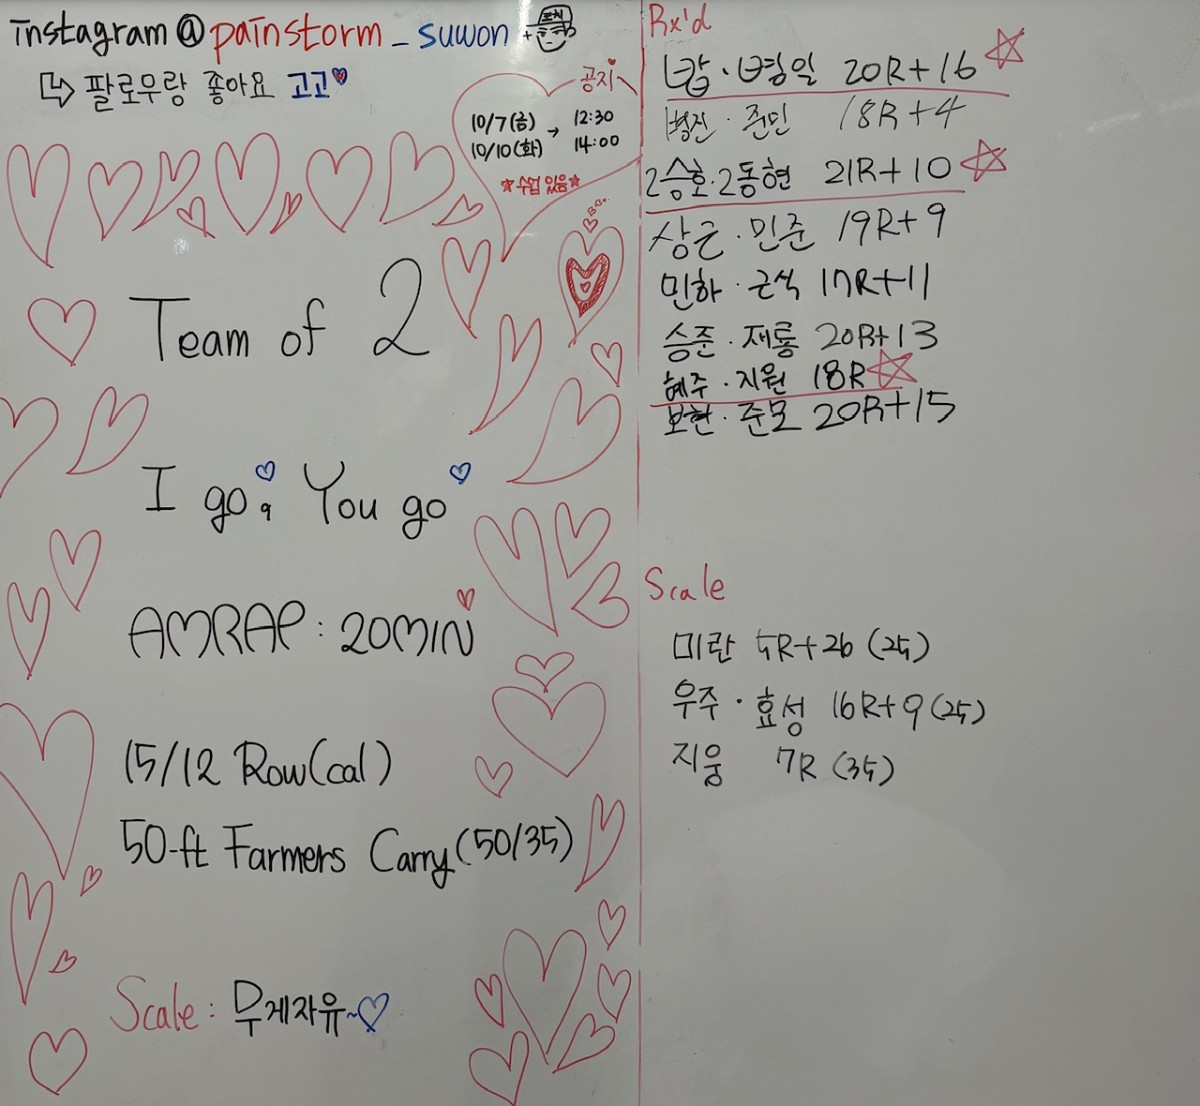 instagram @ painstorm_suwon +
팔로우랑 좋아요 고고
공지
10/7(금) → 12:30
10/10(화) 14:00
☆수업 있음☆
Team of 2
I go, You go
AMRAP : 20MIN
15/12 Row(cal)
50-ft Farmers Carry (50/35)
Scale : 무게자유~
Rx'd
밥 · 병일 20R+16
형진 · 준민 18R+4
2승호 · 2동현 21R+10
상근 · 민준 19R+9
민하 · 근석 17R+11
승준 · 재룡 20R+13
혜주 · 지원 18R
보현 · 준모 20R+15
Scale
미란 5R+26 (25)
우주 · 효성 16R+9 (25)
지웅 7R (35)